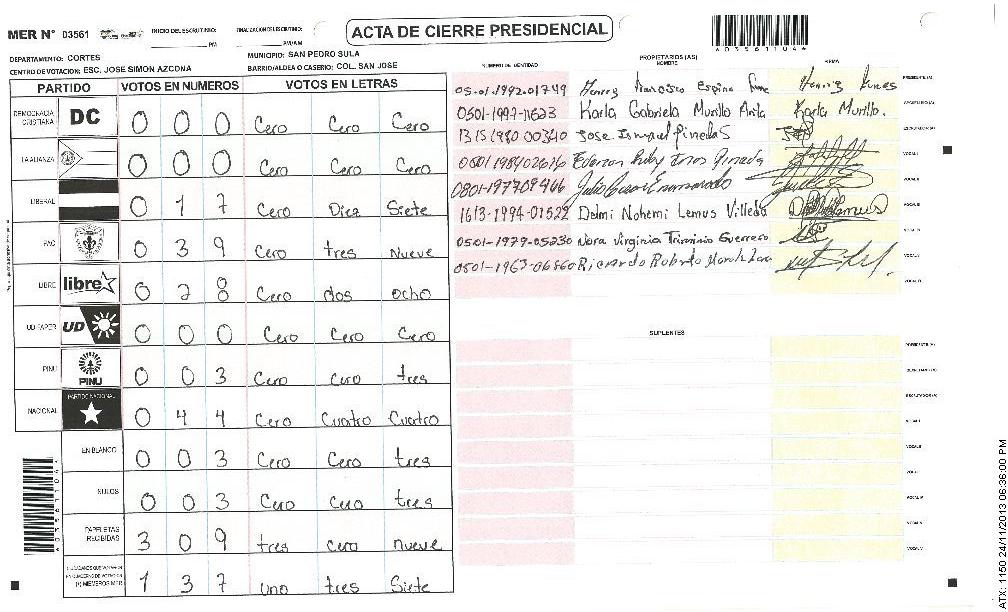 MER N° 03561
INICIO DEL ESCRUTINIO: PM
FINALIZACION ESCRUTINIO: PM/AM
ACTA DE CIERRE PRESIDENCIAL
DEPARTAMENTO: CORTES
MUNICIPIO: SAN PEDRO SULA
CENTRO DE VOTACION: ESC. JOSE SIMON AZCONA
BARRIO/ALDEA O CASERIO: COL. SAN JOSE
PARTIDO VOTOS EN NUMEROS VOTOS EN LETRAS
DEMOCRACIA CRISTIANA DC 0 0 0 Cero Cero Cero
LA ALIANZA 0 0 0 Cero Cero Cero
LIBERAL 0 1 7 Cero Diez Siete
PAC 0 3 9 Cero tres Nueve
LIBRE libre 0 2 8 Cero dos ocho
UD FAPER UD 0 0 0 Cero Cero Cero
PINU PINU 0 0 3 Cero Cero tres
NACIONAL PARTIDO NACIONAL 0 4 4 Cero Cuatro Cuatro
EN BLANCO 0 0 3 Cero Cero tres
NULOS 0 0 3 Cero Cero tres
PAPELETAS RECIBIDAS 3 0 9 tres cero nueve
CIUDADANOS QUE VOTARON EN CUADERNO DE VOTACION (+) MIEMBROS MER 1 3 7 uno tres Siete
NUMERO DE IDENTIDAD
PROPIETARIOS (AS)
NOMBRE
FIRMA
05-01-1992-01749 Henrry francisco Espino PRESIDENTE (A)
0501-1997-11623 Karla Gabriela Murillo Karla Murillo. SECRETARIO (A)
1315 1980 00340 Jose Ismael Pinedas ESCRUTADOR (A)
0501 1984 02616 VOCAL I
0801-1977 09466 Julio Cesar Enamorado VOCAL II
1613-1994-01522 Delmi Nohemi Lemus Villeda VOCAL III
0501-1979-05230 Nora Virginia Triminio Guerrero VOCAL IV
0501-1963-06860 Ricardo Roberto VOCAL V
SUPLENTES
PRESIDENTE (A)
SECRETARIO (A)
ESCRUTADOR (A)
VOCAL I
VOCAL II
VOCAL III
VOCAL IV
VOCAL V
ATX: 1150 24/11/2013 06:36:00 PM